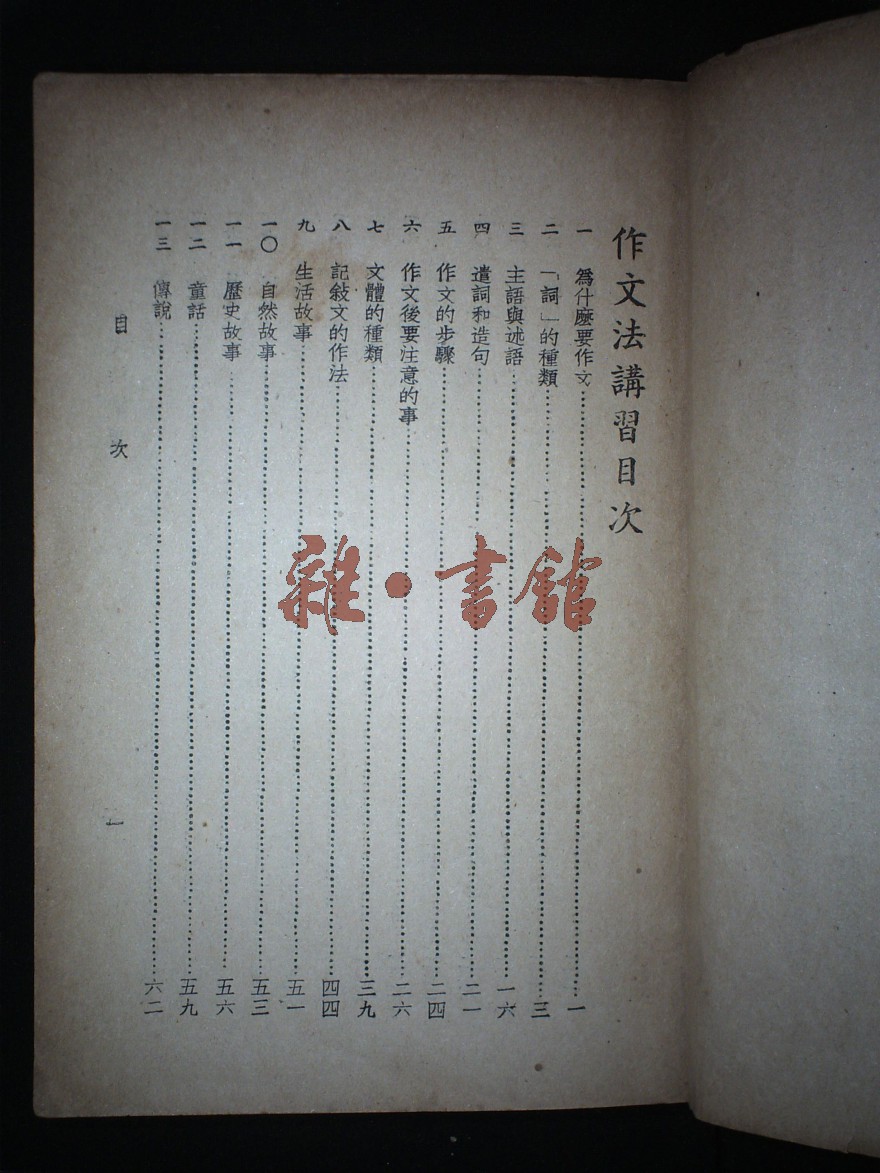 作文法講習目次
一 爲什麽要作文 一
二 「詞」的種類 三
三 主語與述語 一六
四 遣詞和造句 二一
五 作文的步驟 二四
六 作文後要注意的事 二六
七 文體的種類 三九
八 記敍文的作法 四四
九 生活故事 五一
一〇 自然故事 五三
一一 歷史故事 五六
一二 童話 五九
一三 傳說 六二
目次 一
雜·書館